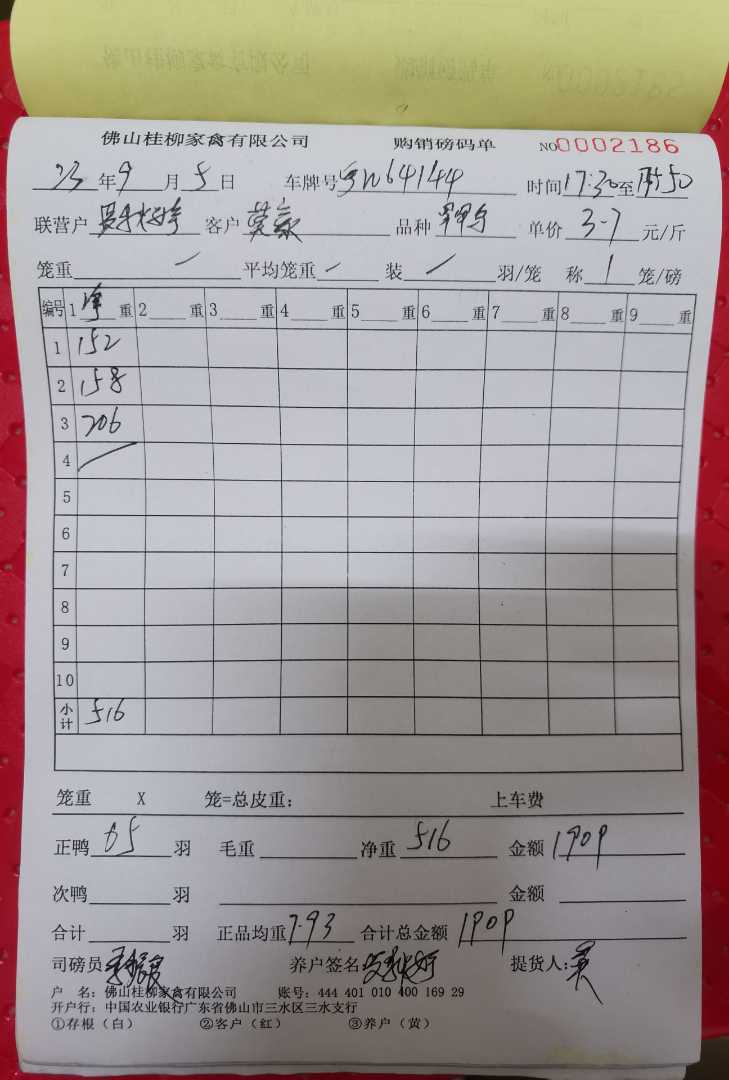 佛山桂柳家禽有限公司 购销磅码单 NO0002186
23年9月5日 车牌号 64144 时间17:30至 50
联营户 客户 品种 单价3-7元/斤
笼重 一 平均笼重 一 装 / 羽/笼 称 1 笼/磅
编号 1 净 重 2 重 3 重 4 重 5 重 6 重 7 重 8 重 9 重
1 152
2 158
3 206
4
5
6
7
8
9
10
小计 516
笼重 X 笼=总皮重: 上车费
正鸭 65 羽 毛重 净重 516 金额 1909
次鸭 羽 金额
合计 羽 正品均重 7.93 合计总金额 1909
司磅员 养户签名 提货人:
户 名: 佛山桂柳家禽有限公司 账号: 444 401 010 400 169 29
开户行: 中国农业银行广东省佛山市三水区三水支行
①存根（白） ②客户（红） ③养户（黄）